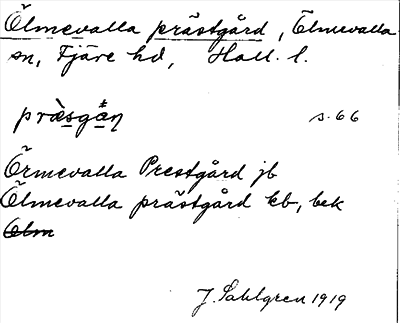 Ölmevalla prästgård, Ölmevalla
sn, Fjäre hd, Hall. l.
præ̀sgån s. 66
Örmevalla Prestgård jb
Ölmevalla prästgård kb, bek
Ölm
J. Sahlgren 1919